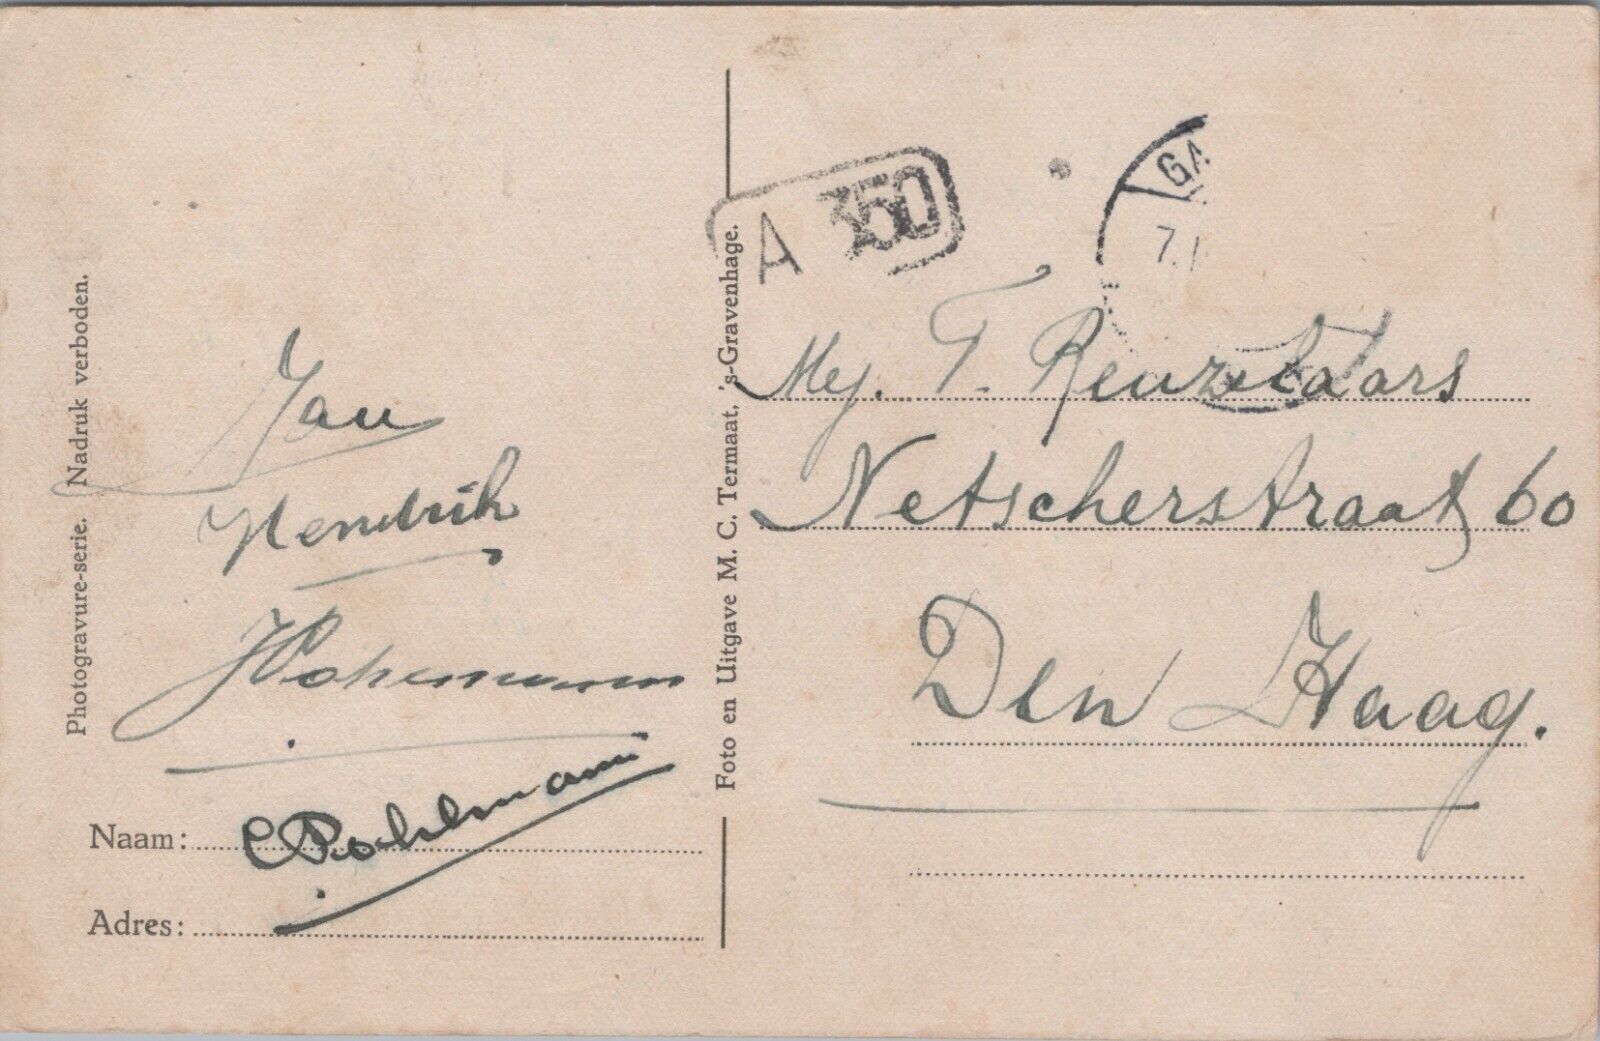 Photogravure-serie. Nadruk verboden.
Jan
Hendrik
Naam: C Pohlmann
Adres:
Foto en Uitgave M. C. Termaat, 's-Gravenhage.
A 350
GA
7.1
Mej. T. Reuzelaars
Netscherstraat 60
Den Haag.